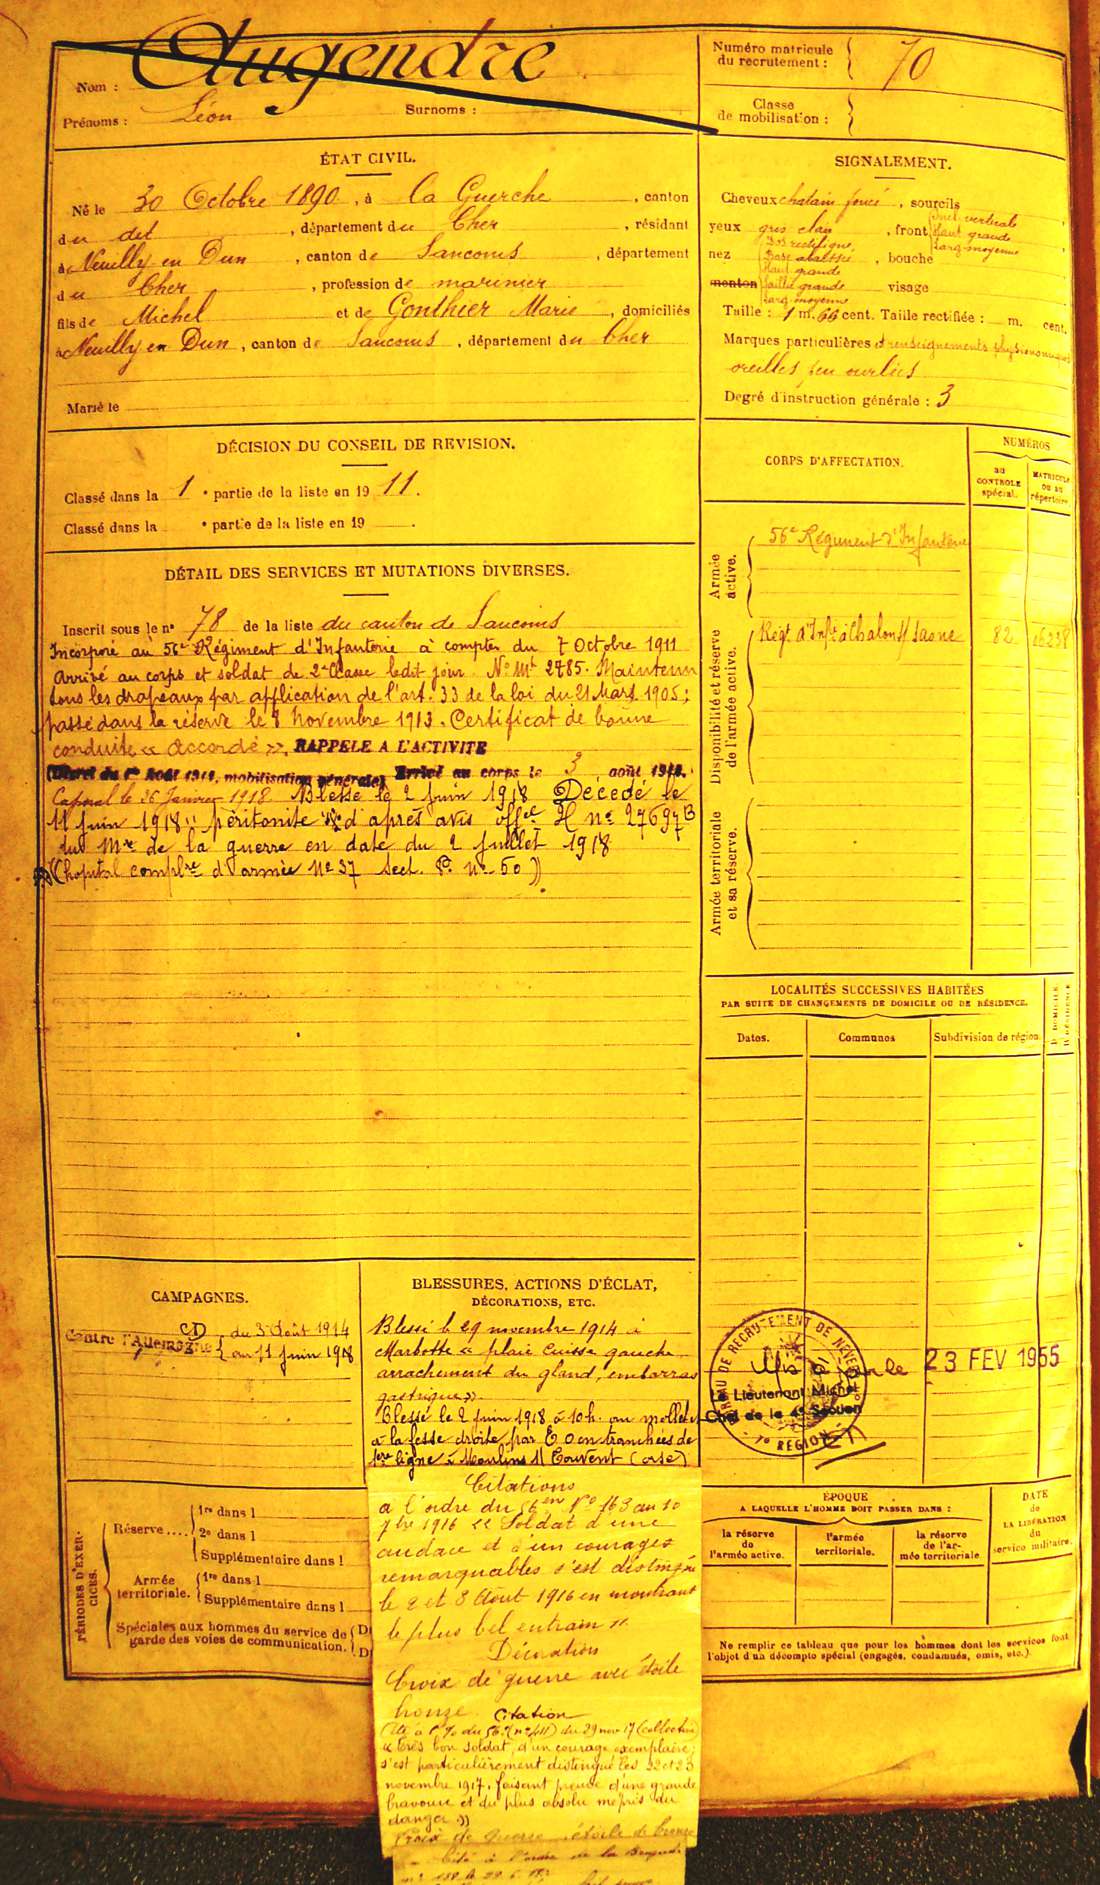 Nom : Augendre
Prénoms : Léon Surnoms :
Numéro matricule
du recrutement : 70
Classe
de mobilisation :
ÉTAT CIVIL.
Né le 30 Octobre 1890, à La Guerche, canton
du dit, département du Cher, résidant
à Neuilly en Dun, canton de Sancoins, département
du Cher, profession de marinier
fils de Michel et de Gonthier Marie, domiciliés
à Neuilly en Dun, canton de Sancoins, département du Cher
Marié le
SIGNALEMENT.
Cheveux chatain foncé, sourcils
yeux gris clair, front Incl verticale
Haut grande
Larg moyenne
nez Dos rectiligne, bouche
Base abaissée
Haut grande
menton Saillie grande visage
Larg moyenne
Taille : 1 m. 66 cent. Taille rectifiée : m. cent.
Marques particulières et renseignements physionomiques
oreilles peu ourlées
Degré d'instruction générale : 3
DÉCISION DU CONSEIL DE REVISION.
Classé dans la 1 e partie de la liste en 1911.
Classé dans la e partie de la liste en 19
DÉTAIL DES SERVICES ET MUTATIONS DIVERSES.
Inscrit sous le n° 78 de la liste du canton de Sancoins
Incorporé au 56e Régiment d'Infanterie à compter du 7 Octobre 1911
Arrivé au corps et soldat de 2e Classe ledit jour. No Mle 2785. Maintenu
sous les drapeaux par application de l'art. 33 de la loi du 21 Mars 1905;
passé dans la réserve le 8 Novembre 1913. Certificat de bonne
conduite « Accordé », RAPPELE A L'ACTIVITE
(Décret du 1er Août 1914, mobilisation générale) Arrivé au corps le 3 août 1914.
Caporal le 26 Janvier 1918. Blessé le 2 Juin 1918 Décédé le
11 Juin 1918 " péritonite d'après avis offel H no 27697B
du Mre de la guerre en date du 2 Juillet 1918
(hopital complre d'armée No 37 Sect. P. No 60))
CORPS D'AFFECTATION.
NUMÉROS
au
CONTROLE
spécial.
MATRICULE
OU AU
répertoire
Armée
active.
56e Régiment d'Infanterie
Disponibilité et réserve
de l'armée active.
Régt d'Inft à Chalon s/ Saone 82
Armée territoriale
et sa réserve.
LOCALITÉS SUCCESSIVES HABITÉES
PAR SUITE DE CHANGEMENTS DE DOMICILE OU DE RÉSIDENCE.
Dates.
Communes
Subdivision de région.
D. DOMICILE.
R. RÉSIDENCE
CAMPAGNES.
Contre l'Allemagne CD du 3 Août 1914
au 11 Juin 1918
BLESSURES, ACTIONS D'ÉCLAT,
DÉCORATIONS, ETC.
Blessé le 29 novembre 1914 à
Marbotte « plaie cuisse gauche
arrachement du gland, embarras
gastrique ».
Blessé le 2 Juin 1918 à 10h. au mollet et
à la fesse droite par E O en tranchées de
1ère ligne à Moulins s/ Touvent (oise)
Citations
a l'ordre du 56em No 163 au 10
7bre 1916 « Soldat d'une
audace et d'un courage
remarquables s'est distingué
le 2 et 3 Août 1916 en montrant
le plus bel entrain ».
Décoration
Croix de guerre avec étoile
bronze. Citation
Cité à l'o/ du 56e (no 411) du 29 nov 17 (collective)
« très bon soldat, d'un courage exemplaire;
s'est particulièrement distingué les 22 et 23
novembre 1917, faisant preuve d'une grande
bravoure et du plus absolu mépris du
danger »
Croix de guerre étoile de bronze
Cité à l'ordre de la Brigade
BUREAU DE RECRUTEMENT DE NEVERS
Le Lieutenant Michel
Chef de la 4e Section
RÉGION
23 FEV 1955
PÉRIODES D'EXERCICES.
Réserve .... 1re dans l
2e dans l
Supplémentaire dans l
Armée
territoriale. 1re dans l
Supplémentaire dans l
Spéciales aux hommes du service de
garde des voies de communication.
ÉPOQUE
A LAQUELLE L'HOMME DOIT PASSER DANS :
la réserve
de
l'armée active.
l'armée
territoriale.
la réserve
de l'ar-
mée territoriale
DATE
de
LA LIBÉRATION
du
service militaire.
Ne remplir ce tableau que pour les hommes dont les services font
l'objet d'un décompte spécial (engagés, condamnés, omis, etc.)